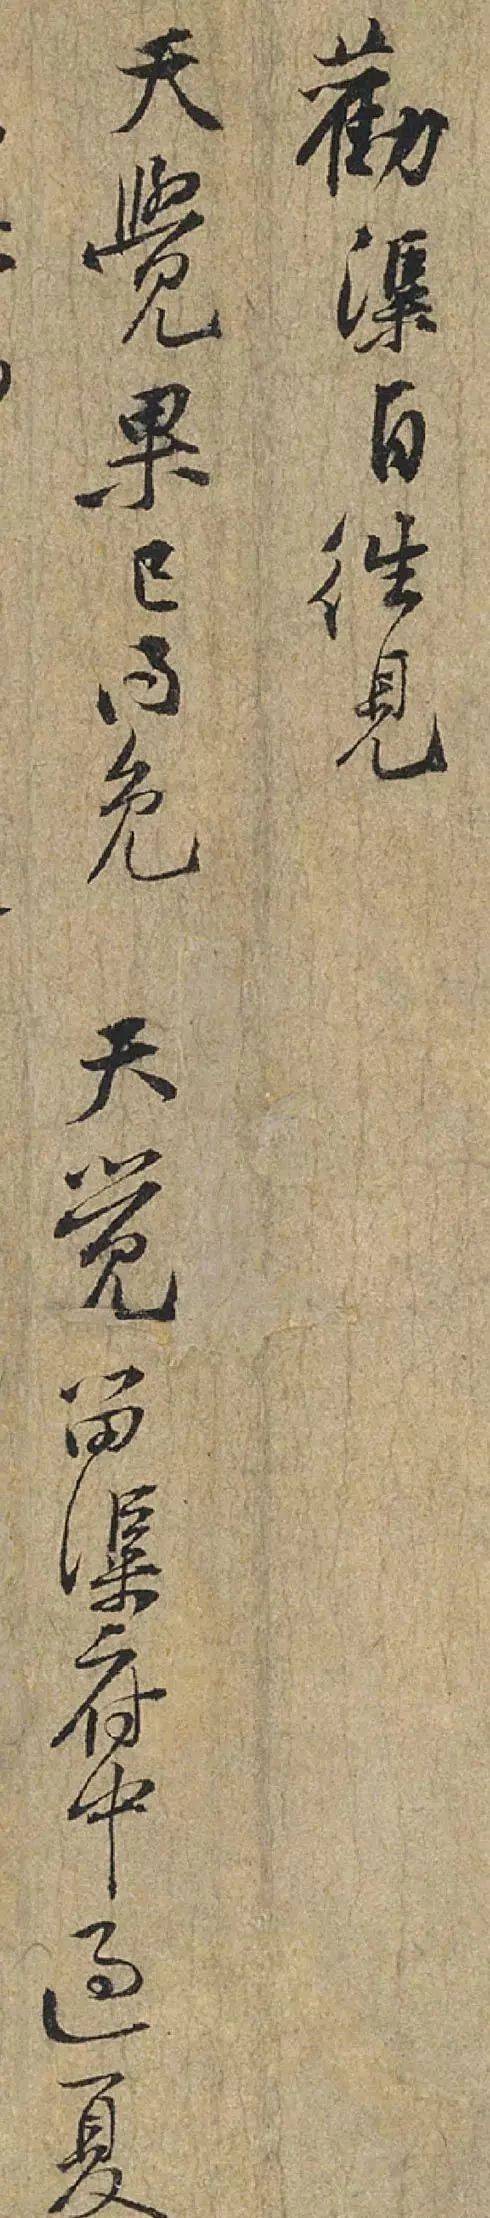 勸渠自往見
天覺果已得免　天覺留渠府中過夏